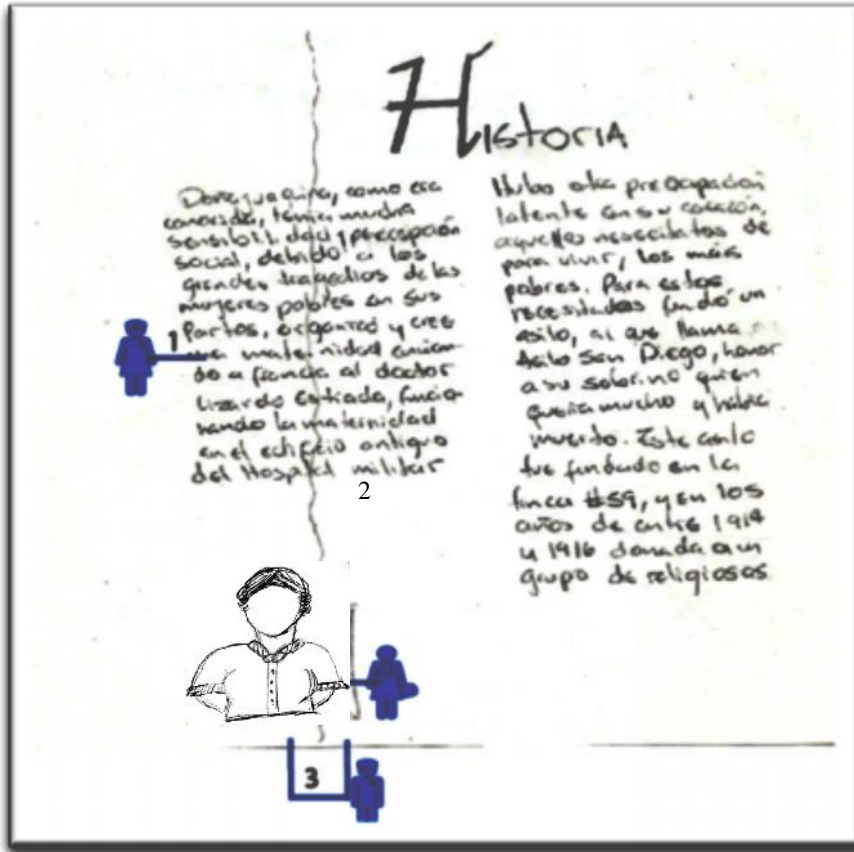 Historia
Dona Joaquina, como era
conocida, tenia mucha
sensibilidad y precepción
social, debido a las
grandes tragedias de las
mujeres pobres en sus
Partos, organizó y creo
una maternidad envian-
do a francia al doctor
Lizardo Estrada, funcio-
nando la maternidad
en el edificio antiguo
del Hospital militar
Hubo otra preocupación
latente en su corazón,
aquellos necesitados de
para vivir, los más
pobres. Para estos
necesitados fundó un
asilo, al que llama
Asilo San Diego, honor
a su sobrino quien
queria mucho y había
muerto. Este asilo
fue fundado en la
finca #59, y en los
años de entre 1914
y 1916 donada a un
grupo de religiosos
1
2
3